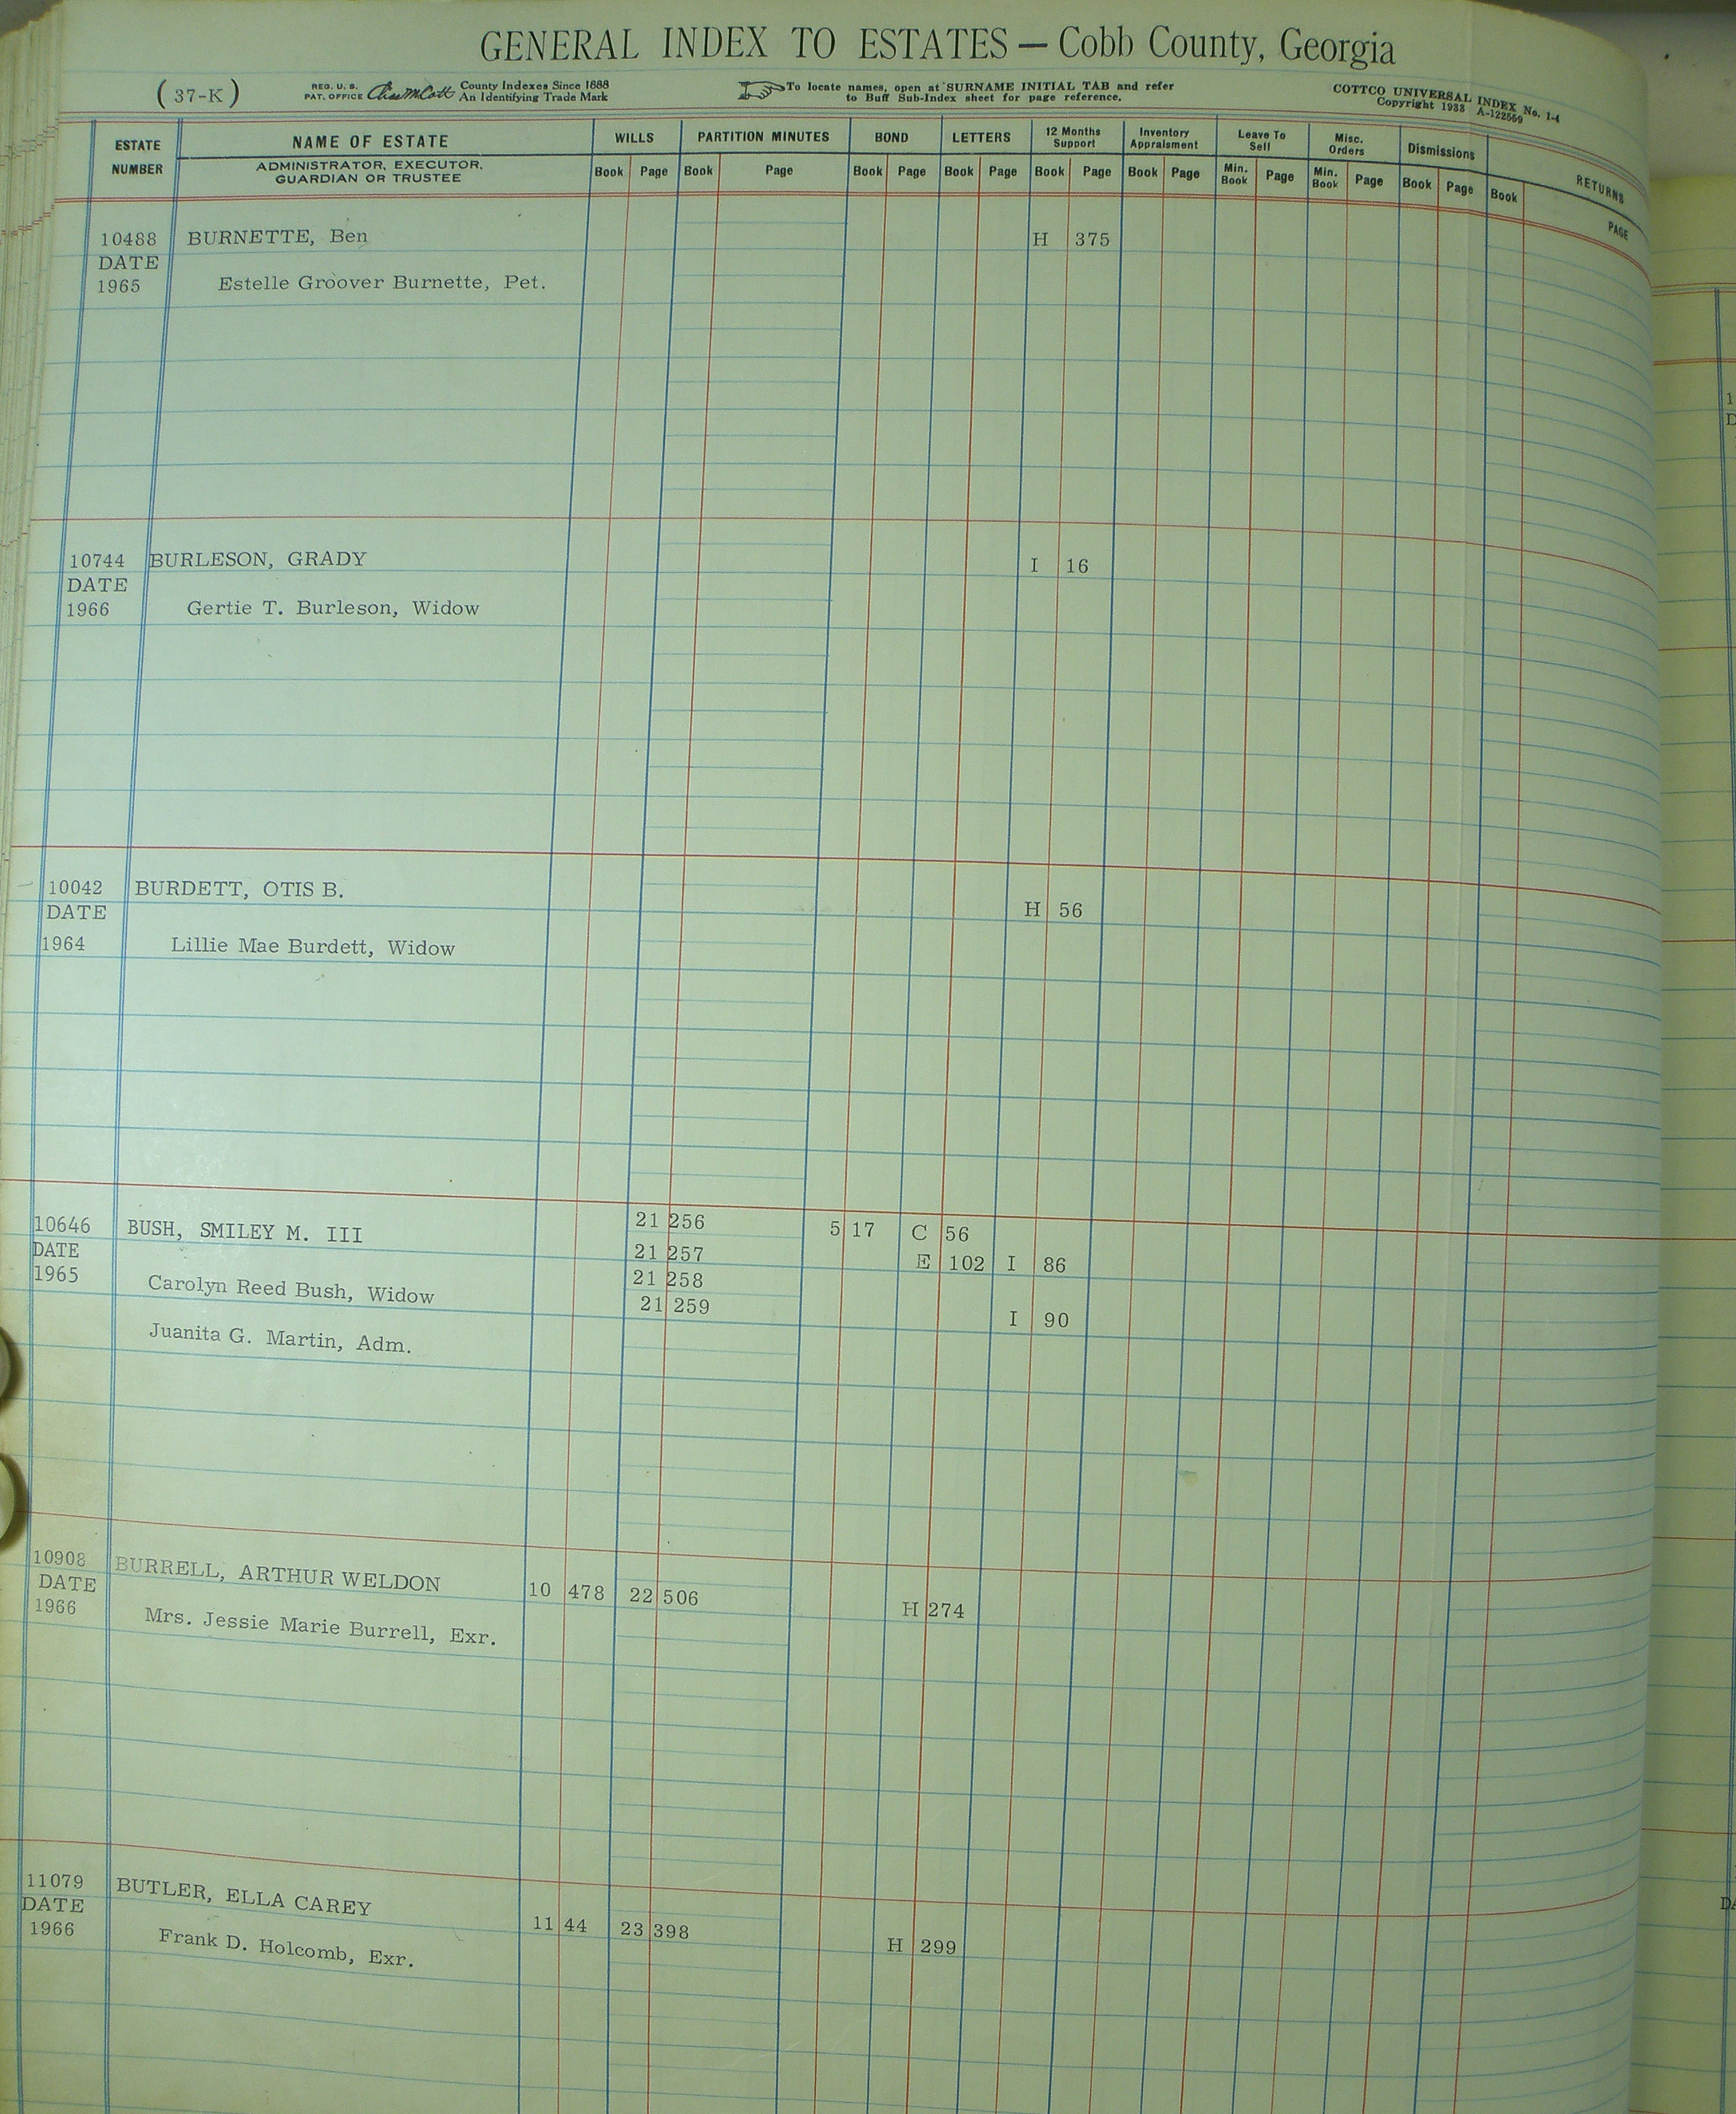 GENERAL INDEX TO ESTATES — Cobb County, Georgia
(37-K) REG. U. S. PAT. OFFICE County Indexes Since 1888 An Identifying Trade Mark To locate names, open at SURNAME INITIAL TAB and refer to Buff Sub-Index sheet for page reference. COTTCO UNIVERSAL INDEX No. 1-4 Copyright 1933 A-122559
ESTATE NUMBER NAME OF ESTATE WILLS PARTITION MINUTES BOND LETTERS 12 Months Support Inventory Appraisment Leave To Sell Misc. Orders Dismissions RETURNS
ADMINISTRATOR, EXECUTOR, GUARDIAN OR TRUSTEE Book Page Book Page Book Page Book Page Book Page Book Page Min. Book Page Min. Book Page Book Page Book PAGE
10488 BURNETTE, Ben H 375
DATE
1965 Estelle Groover Burnette, Pet.
10744 BURLESON, GRADY I 16
DATE
1966 Gertie T. Burleson, Widow
10042 BURDETT, OTIS B. H 56
DATE
1964 Lillie Mae Burdett, Widow
10646 BUSH, SMILEY M. III 21 256 5 17 C 56
DATE 21 257 E 102 I 86
1965 Carolyn Reed Bush, Widow 21 258
21 259 I 90
Juanita G. Martin, Adm.
10908 BURRELL, ARTHUR WELDON 10 478 22 506 H 274
DATE
1966 Mrs. Jessie Marie Burrell, Exr.
11079 BUTLER, ELLA CAREY 11 44 23 398 H 299
DATE
1966 Frank D. Holcomb, Exr.